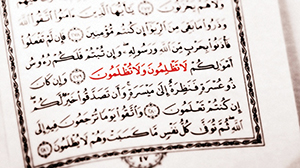 وَلَا هُمْ يَحْزَنُونَ ٢٧٧ يَٰٓأَيُّهَا ٱلَّذِينَ ءَامَنُوا۟ ٱتَّقُوا۟
وَذَرُوا۟ مَا بَقِىَ مِنَ ٱلرِّبَوٰٓا۟ إِن كُنتُم مُّؤْمِنِينَ ٢٧٨ فَإِن لَّمْ تَفْعَلُوا۟
فَأْذَنُوا۟ بِحَرْبٍ مِّنَ ٱللَّهِ وَرَسُولِهِۦ وَإِن تُبْتُمْ فَلَكُمْ رُءُوسُ
أَمْوَٰلِكُمْ لَا تَظْلِمُونَ وَلَا تُظْلَمُونَ ٢٧٩ وَإِن كَانَ
ذُو عُسْرَةٍ فَنَظِرَةٌ إِلَىٰ مَيْسَرَةٍ وَأَن تَصَدَّقُوا۟ خَيْرٌ لَّكُمْ
إِن كُنتُمْ تَعْلَمُونَ ٢٨٠ وَٱتَّقُوا۟ يَوْمًا تُرْجَعُونَ فِيهِ إِلَى
ٱللَّهِ ثُمَّ تُوَفَّىٰ كُلُّ نَفْسٍ مَّا كَسَبَتْ وَهُمْ لَا يُظْلَمُونَ ٢٨١
٤٧